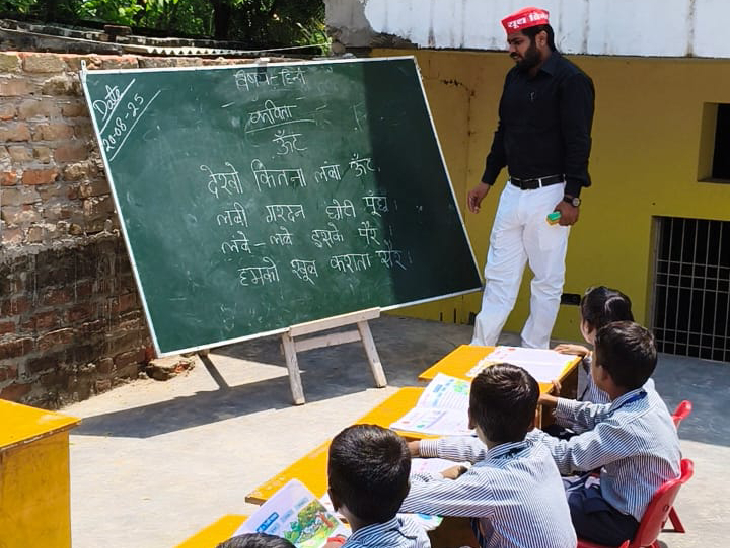 Date
20-08-25
विषय - हिन्दी
कविता
ऊँट
देखो कितना लंबा ऊँट,
लंबी गरदन छोटी पूँछ।
लंबे - लंबे इसके पैर
हमको खूब कराता सैर।